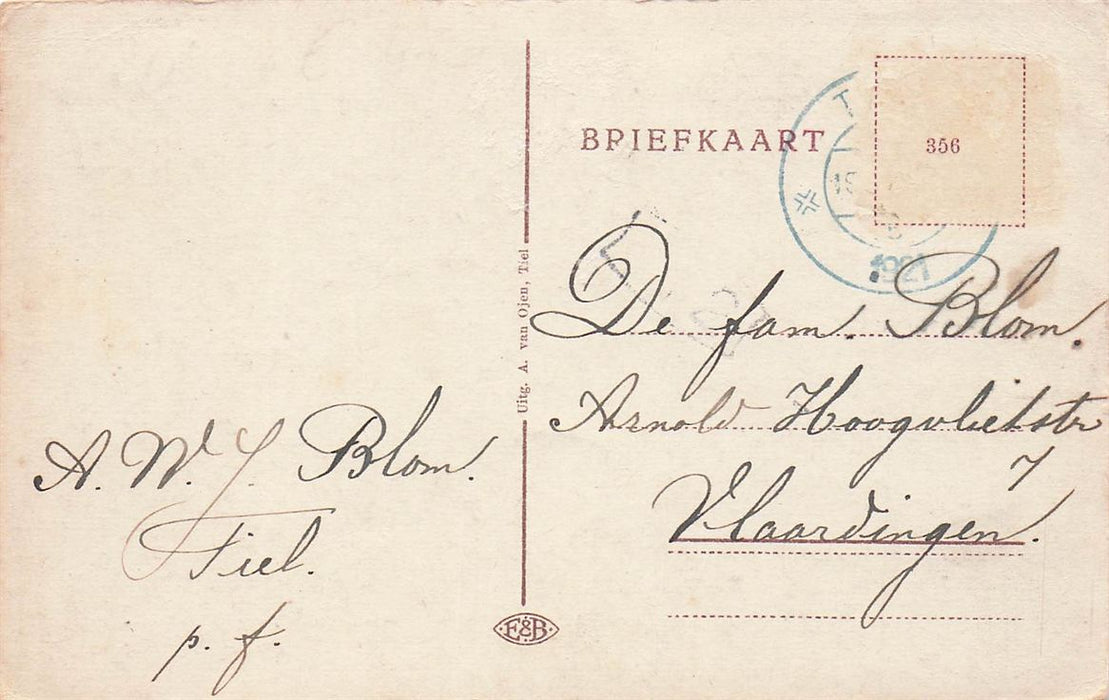 A. W. J. Blom.
Tiel.
p. f.
Uitg. A. van Ojen, Tiel
E&B
BRIEFKAART
356
1921
De fam. Blom.
Arnold Hoogvlietstr
7
Vlaardingen.